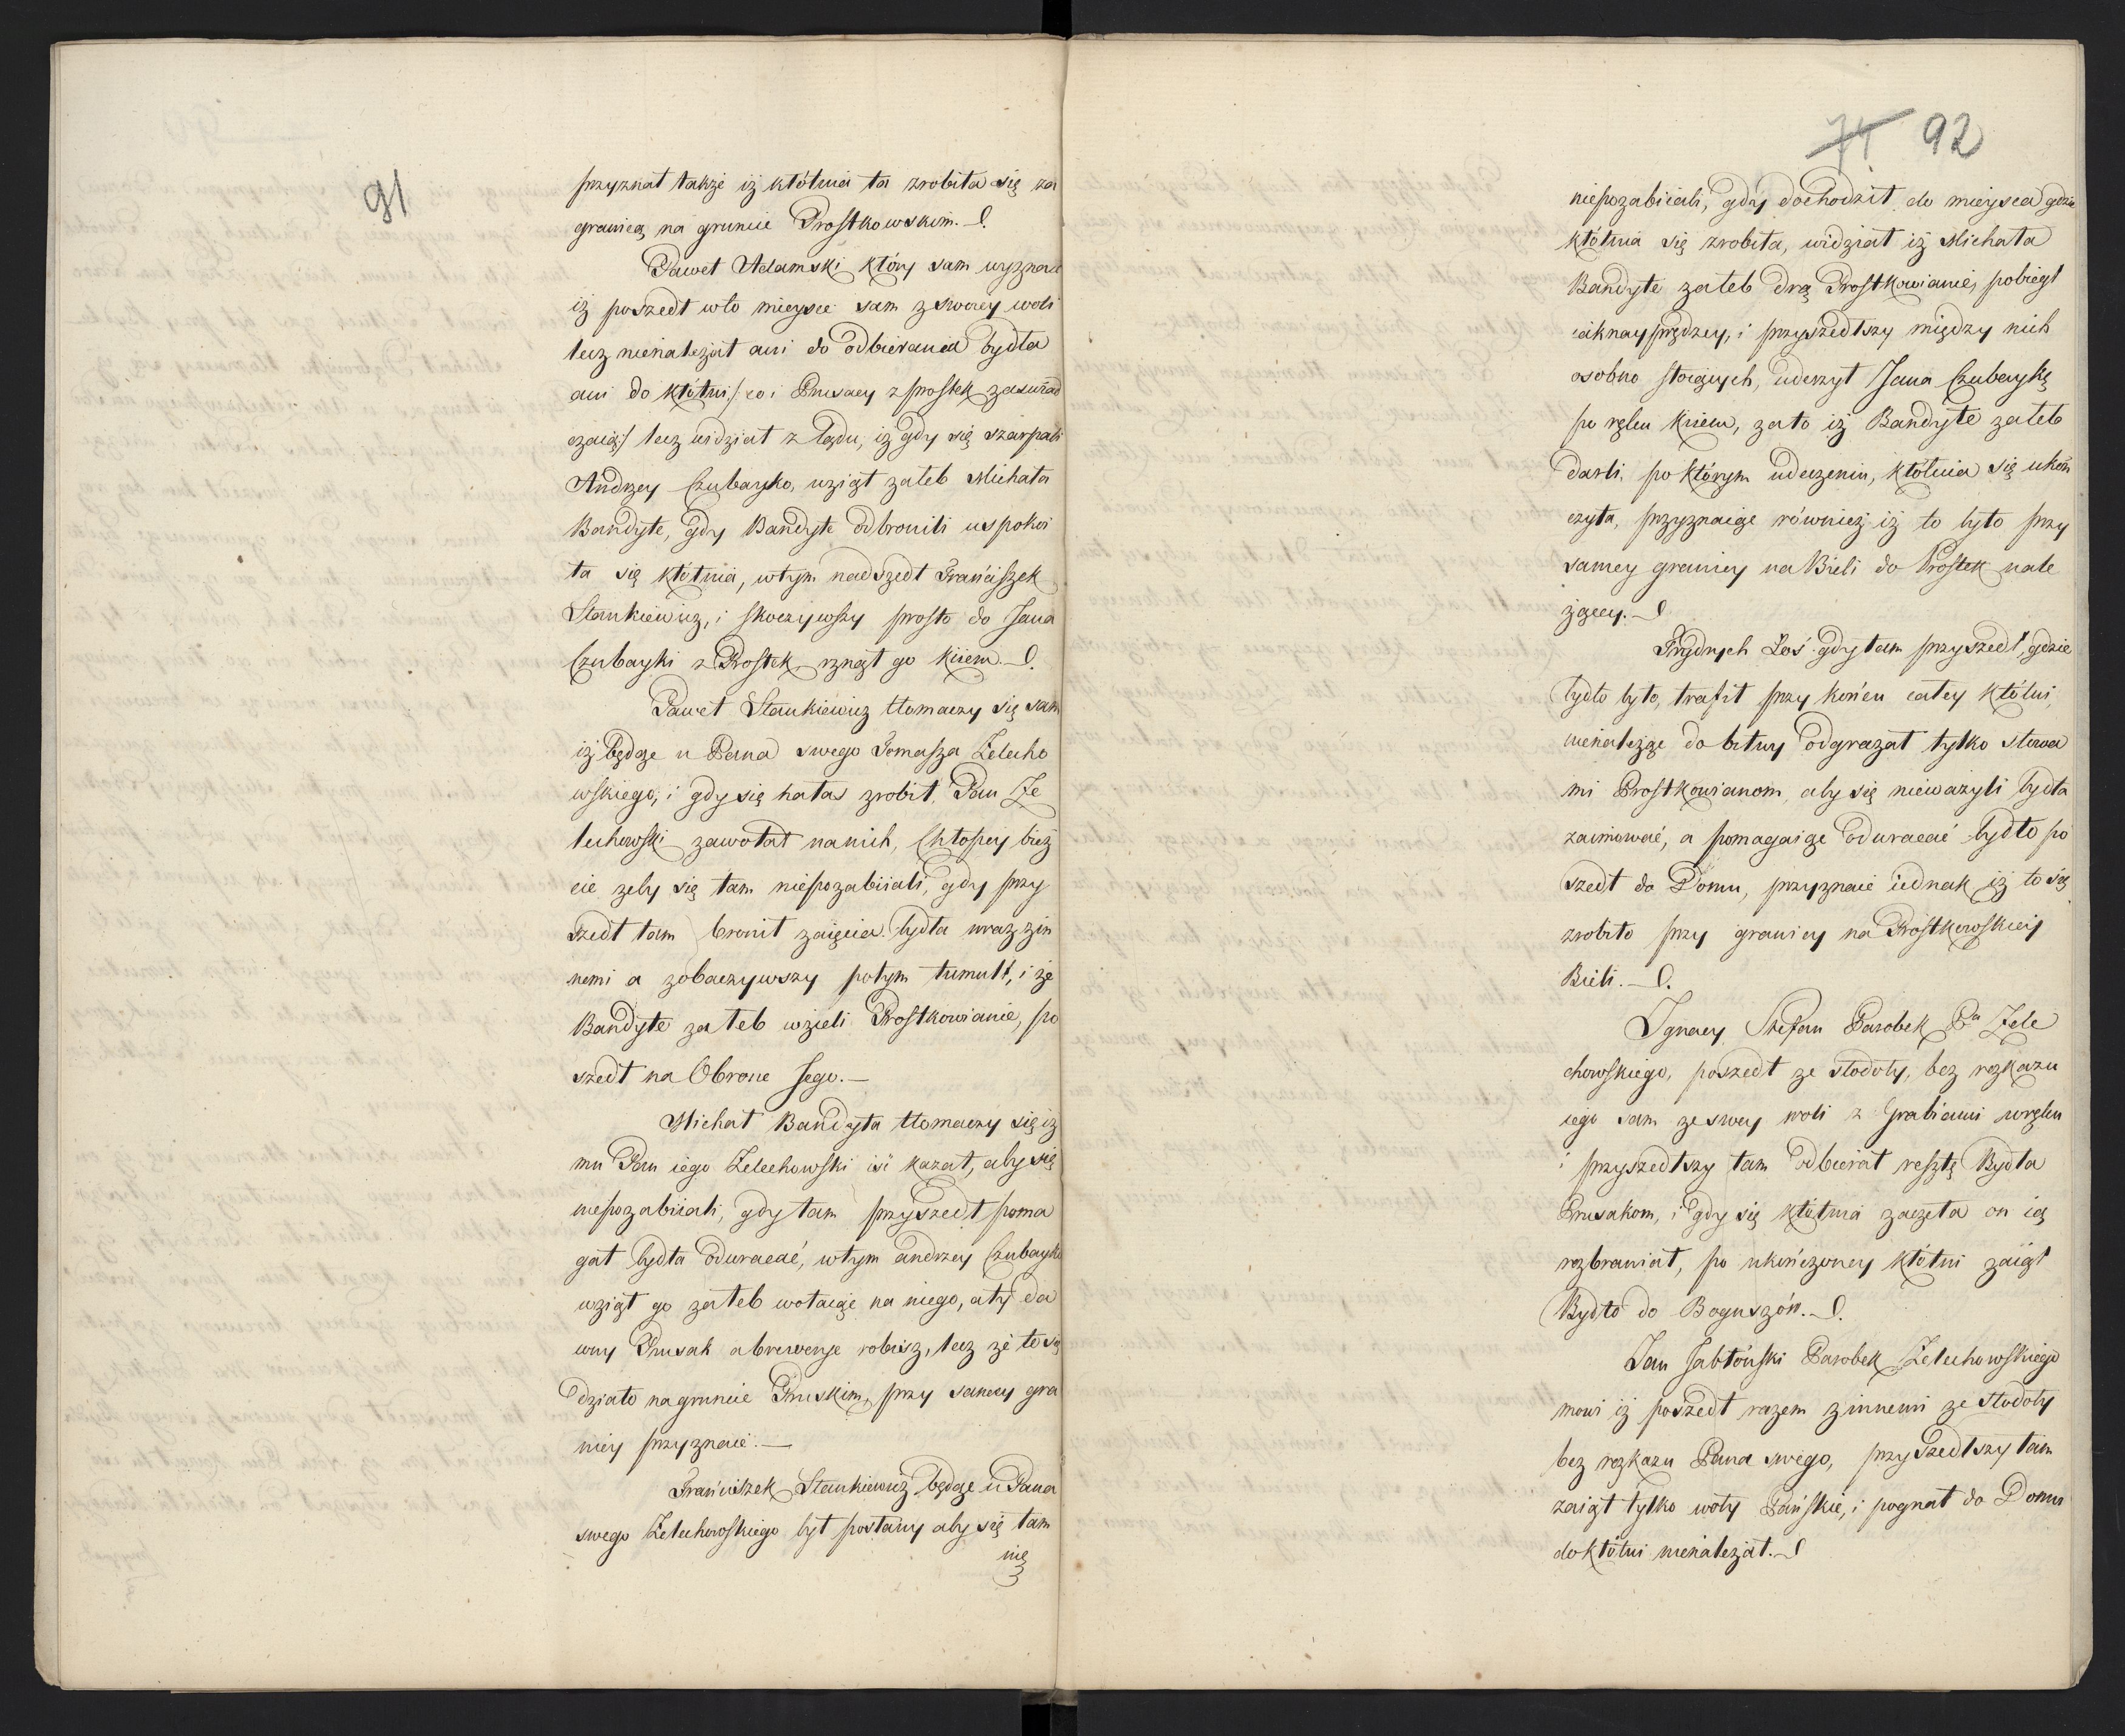 91
przyznał także iż kłótnia ta zrobiła się za
granicą na gruncie Prostkowskim.
Paweł Adamski który sam wyznaie
iż poszedł wto mieysce sam z swoiey woli
lecz nienależał ani do odbierania bydła
ani do kłótni /: co i Prusacy z Prostek zaswiad
czaią :/ lecz widział z Lądu, iż gdy się szarpali
Andrzey Czubayko, wziął załeb Michała
Bandyte, gdy Bandyte odbronili uspokoi
ła się kłótnia, wtym nadszedł Franciszek
Stankiewicz, i skoczywszy prosto do Jana
Czubayki z Prostek rznął go kiiem.
Paweł Stankiewicz tłomaczy się sam
iż będąc u Pana swego Tomasza Zelecho
wskiego, i gdy się hałas zrobił, Pan Ze
lechowski zawołał nanich, Chłopcy bież
cie żeby się tam niepozabiiali, gdy przy
szedł tam bronił zaięcia bydła wraz zin
nemi a zobaczywszy potym tumult, i że
Bandyte za łeb wzieli Prostkowianie, po
szedł na Obrone Jego.—
Michał Bandyta tłomaczy się iż
mu Pan iego Zelechowski iść kazał, aby się
niepozabiiali, gdy tam przyszedł poma
gał bydła odwracać, wtym andrzey Czubayko
wziął go załeb wołaiąc na niego, a ty da
wny Prusak abrewenye robisz, lecz że to się
działo nagruncie Pruskim, przy samey gra
nicy przyznaie.—
Franciszek Stankiewicz będąc u Pana
swego Zelechowskiego był posłany aby się tam
nie
74 92
niepozabiiali, gdy dochodził do mieysca gdzie
kłótnia się zrobiła, widział iż Michała
Bandyte załeb drą Prostkowianie, pobiegł
iaknayprędzey, i przyszedłszy między nich
osobno stoiących, uderzył Jana Czubaykę
po ręku kiiem, zato iż Bandyte załeb
darli, po którym uderzeniu, kłótnia się ukoń
czyła, przyznaiąc również iż to było przy
samey granicy na Bieli do Prostek nale
żącey.
Frydrych Łoś gdy tam przyszedł, gdzie
bydło było, trafił przy końcu całey kłótni,
nienależąc do bitwy odgrażał tylko słowa
mi Prostkowianom, aby się nieważyli bydła
zaimować, a pomagaiąc odwracać bydło po
szedł do Domu, przyznaie iednak iż to się
zrobiło przy granicy na Prostkowskiey
Bieli.
Ignacy Stefan Parobek Pa Zele
chowskiego, poszedł ze stodoły, bez rozkazu
iego sam ze swey woli z Grabiami wręku
i przyszedłszy tam odbierał resztę Bydła
Prusakom, i gdy się kłótnia zaczęła on ią
rozbraniał, po ukończoney kłótni zaiął
Bydło do Boguszów.
Jan Jabłoński Parobek Zelechowskiego
mowi iż poszedł razem zinnemi ze Stodoły
bez rozkazu Pana swego, przyszedłszy tam
zaiął tylko woły Pańskie, i pognał do Domu
dokłótni nienależał.